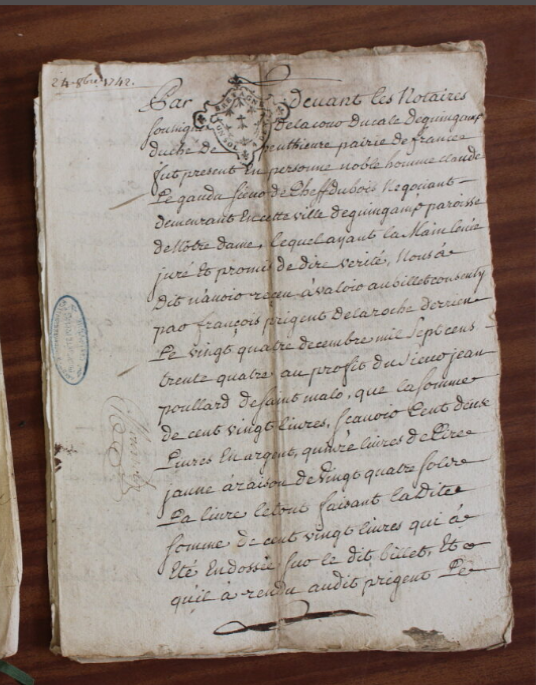 24 - 8bre 1742.
Par devant les Notaires
soussignes De la cour Ducale de guingamp
duché De penthievre pairie de france
fut present En personne noble homme claude
Le gandu sieur de Cheffdubois Negociant -
demeurant En cette ville de guingamp paroisse
de Notre dame, lequel ayant la Main levée
juré Et promis de dire verité, Nous a
Dit n'avoir recu à valoir au billet consenty
par françois prigent De la roche derrien
Le vingt quatre decembre mil sept cens
trente quatre au profit du Sieur jean
poullard de saint malo, que la somme
de cent vingt livres, scavoir Cent deux
Livres En argent, quinze livres de Cire
jaune à raison de Vingt quatre sols
La livre le tout faisant la Ditte
somme de cent vingt livres qui a
Eté Endossée sur le dit billet, Et
qu'il à rendu audit prigent Le